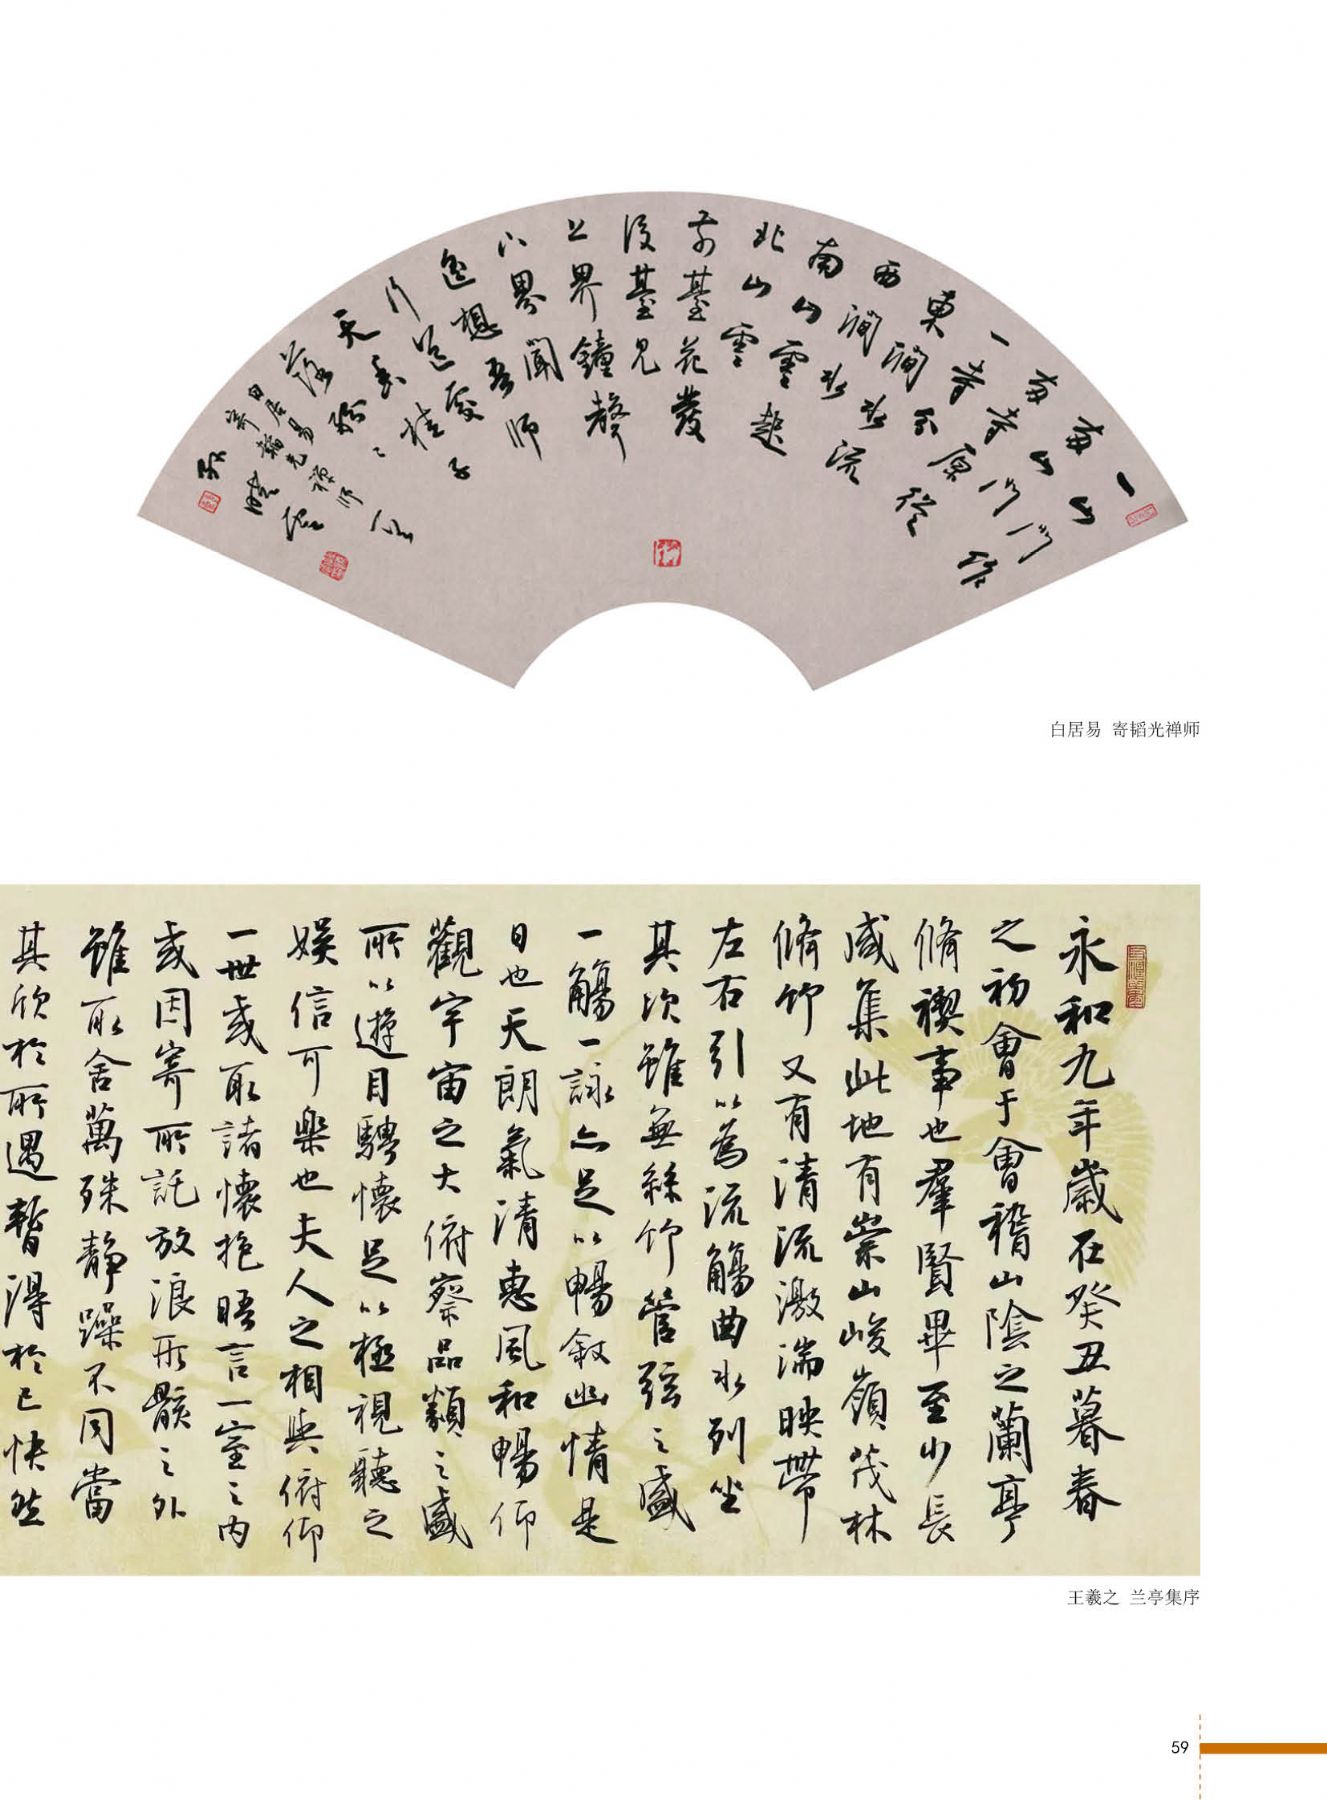 一山門作
兩山門
兩寺原從
一寺分
東澗水流
西澗水
南山雲起
北山雲
前臺花發
後臺見
上界鐘聲
下界聞
遙想吾師
行道處
天香桂子
落紛〻
白居易
寄韜光禪師
白居易 寄韬光禅师
永和九年歲在癸丑暮春
之初會于會稽山陰之蘭亭
脩禊事也羣賢畢至少長
咸集此地有崇山峻嶺茂林
脩竹又有清流激湍映帶
左右引以為流觴曲水列坐
其次雖無絲竹管弦之盛
一觴一詠亦足以暢敘幽情是
日也天朗氣清惠風和暢仰
觀宇宙之大俯察品類之盛
所以遊目騁懷足以極視聽之
娛信可樂也夫人之相與俯仰
一世或取諸懷抱晤言一室之內
或因寄所託放浪形骸之外
雖取舍萬殊静躁不同當
其欣於所遇暫得於己快然
王羲之 兰亭集序
59